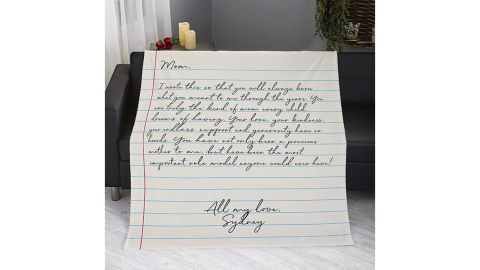 Mom,
I wrote this so that you will always know
what you meant to me through the years. You
are the kind of mom every child
dreams of having. Your love, your kindness,
your endless support and generosity have no
bounds. You have not only been a precious
mother to me, but have been the most
important role model anyone could ever have!
All my love,
Sydney